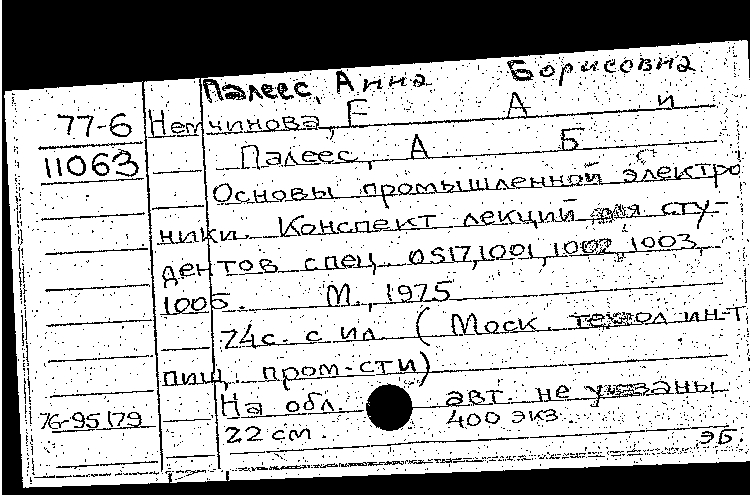 Палеес, Анна Борисовна
77-6 Немчинова, Е А и
11063 Палеес, А Б
Основы промышленной электро
ники. Конспект лекций для сту-
дентов спец. 0517, 1001, 1002, 1003,
1005. М., 1975
74с. с ил. (Моск. технол ин-т
пищ. пром-сти)
На обл. авт. не указаны
76-95179 22 см. 400 экз.
эб.